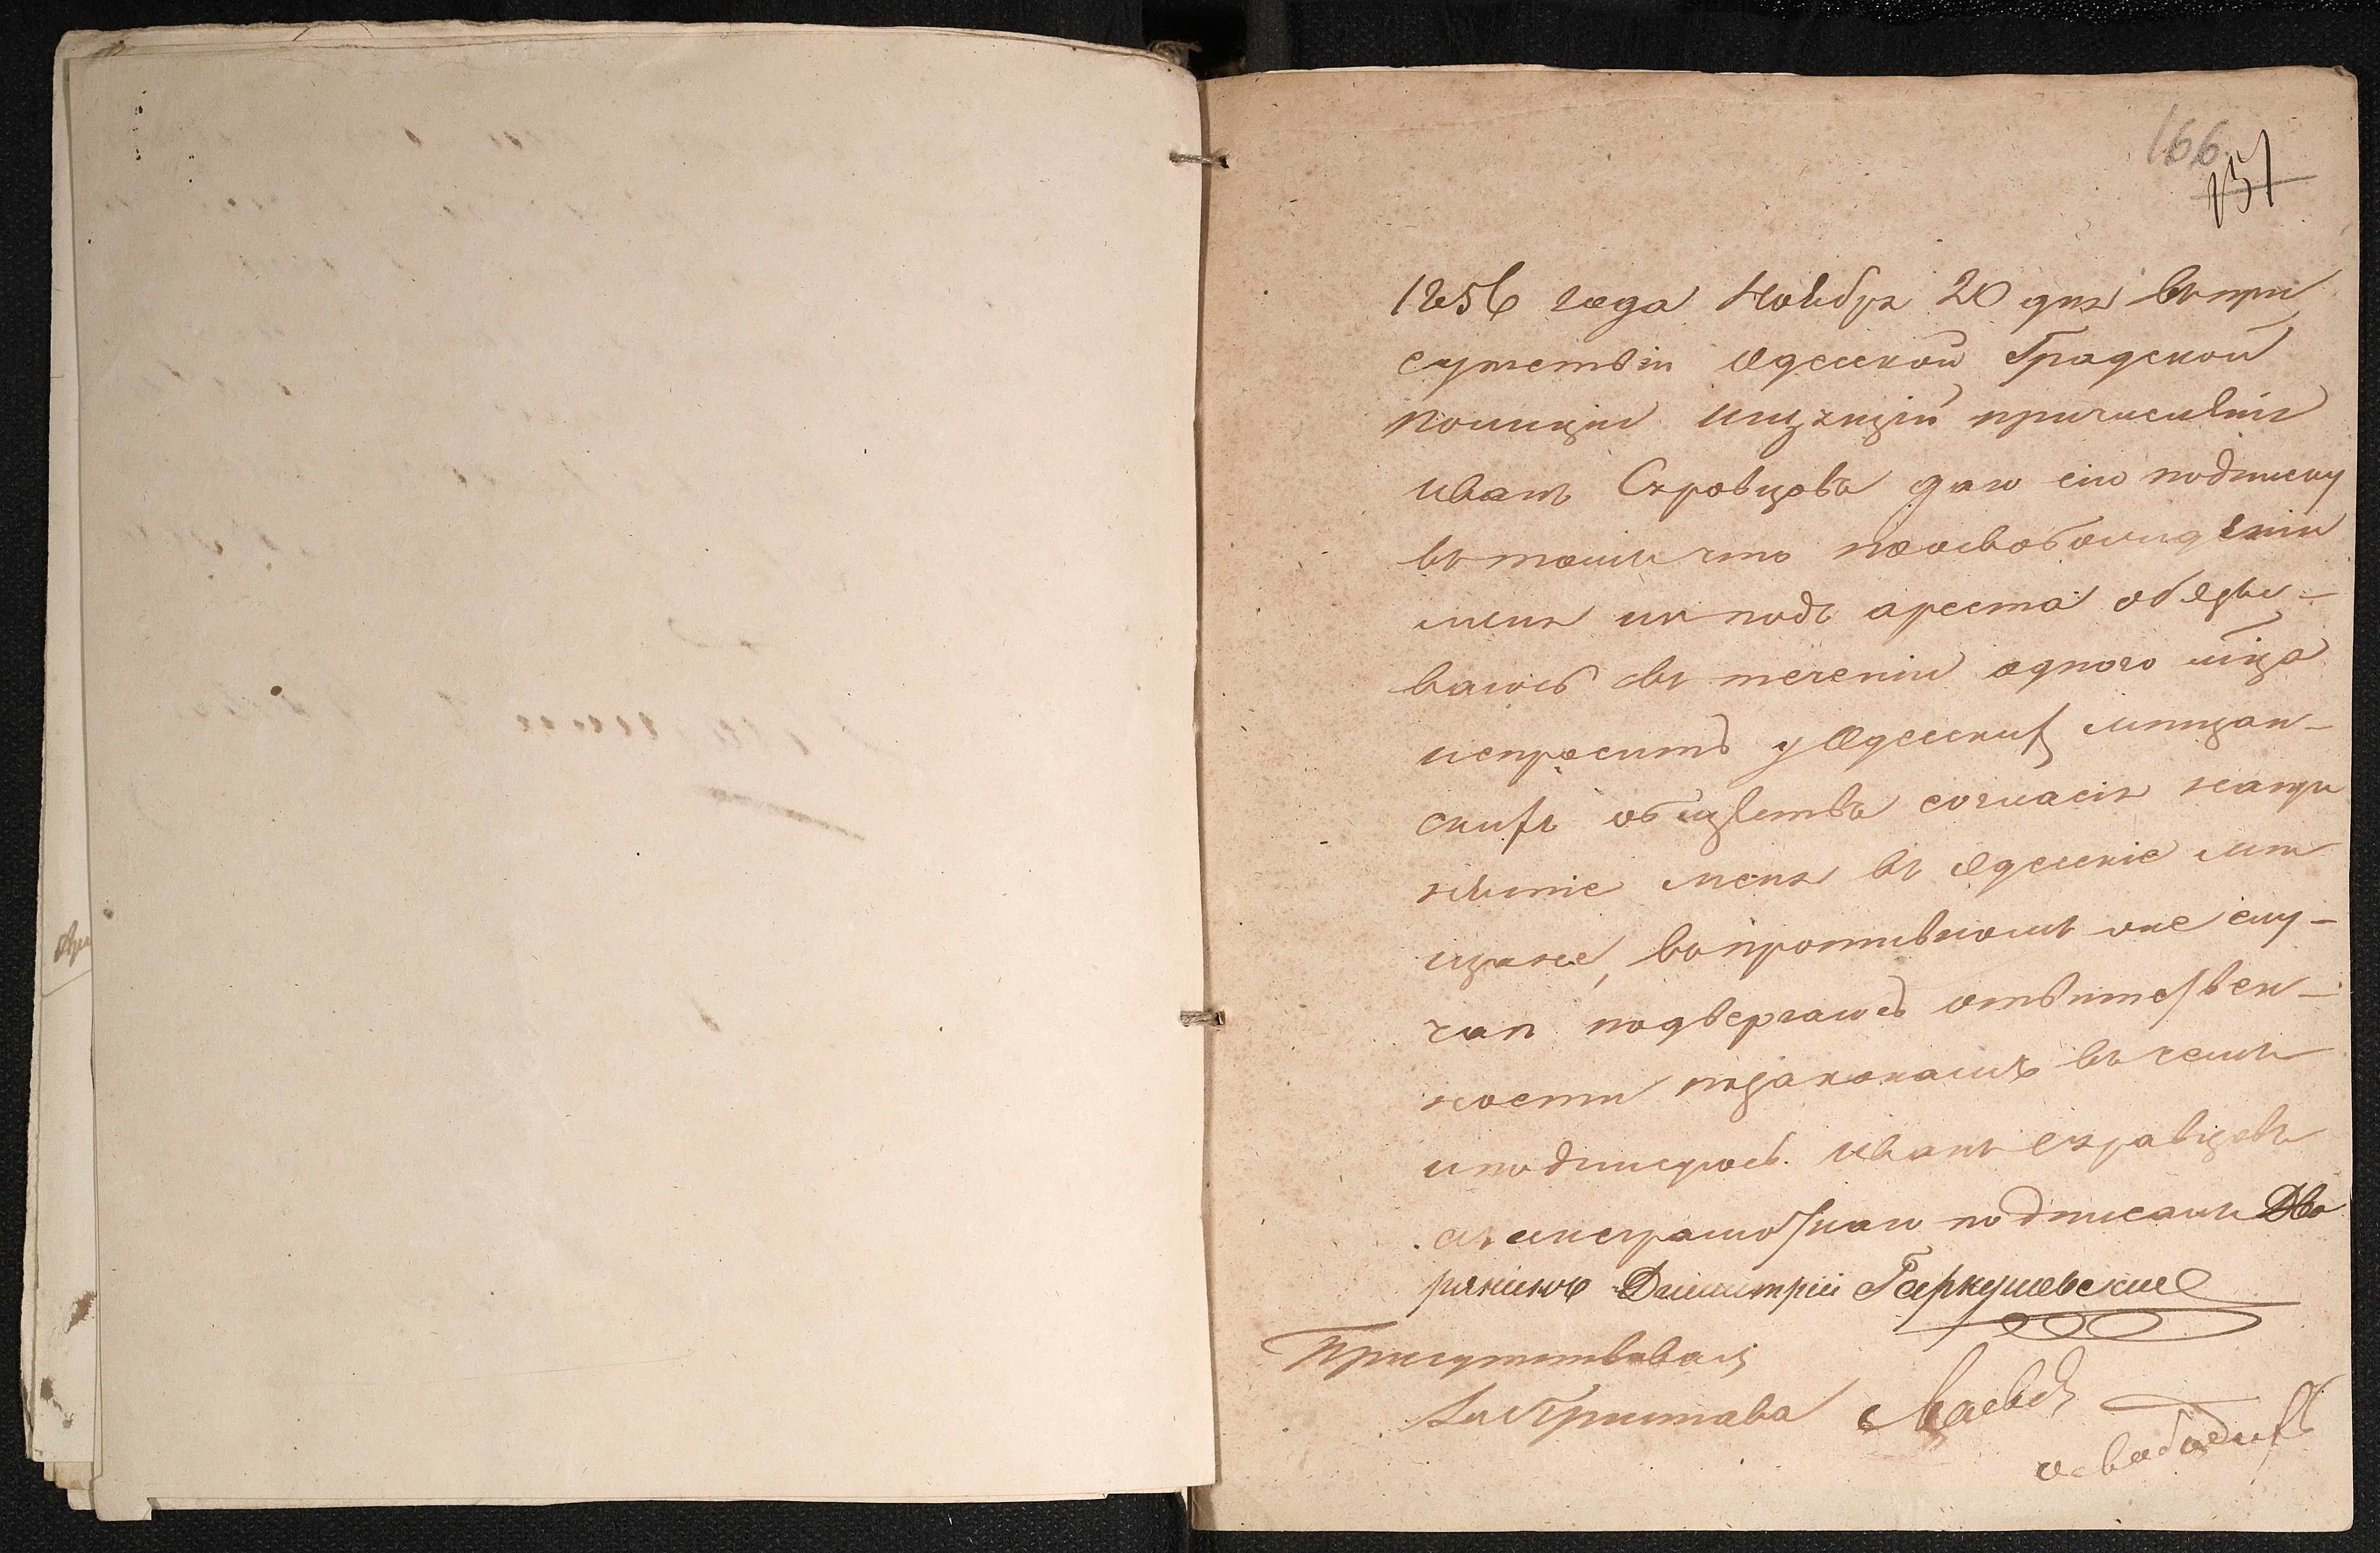 166.
137
1856 года Ноября 20 дня въ при
сутствіи Одесской Градской
Полиціи ищущій причисленія
иванъ Скровцовъ даю сію подписку
въ томъ что по освобожденіи
меня изъ подъ ареста обязы-
ваюсь въ теченіи одного м̃ца
испросить у Одесскихъ мѣщан-
скихъ обществъ согласія на при
нятіе меня въ Одесскіе мѣ
щане, в противномъ же слу-
чаѣ подвергаюсь ответствен-
ности по законамъ въ чемъ
и подписуюсь. иванъ скравцовъ
а за неграмотнаго подписалъ Дво
рянинъ Димитрій Гаркушевскій
Присутствовалъ
Пристава
освободить